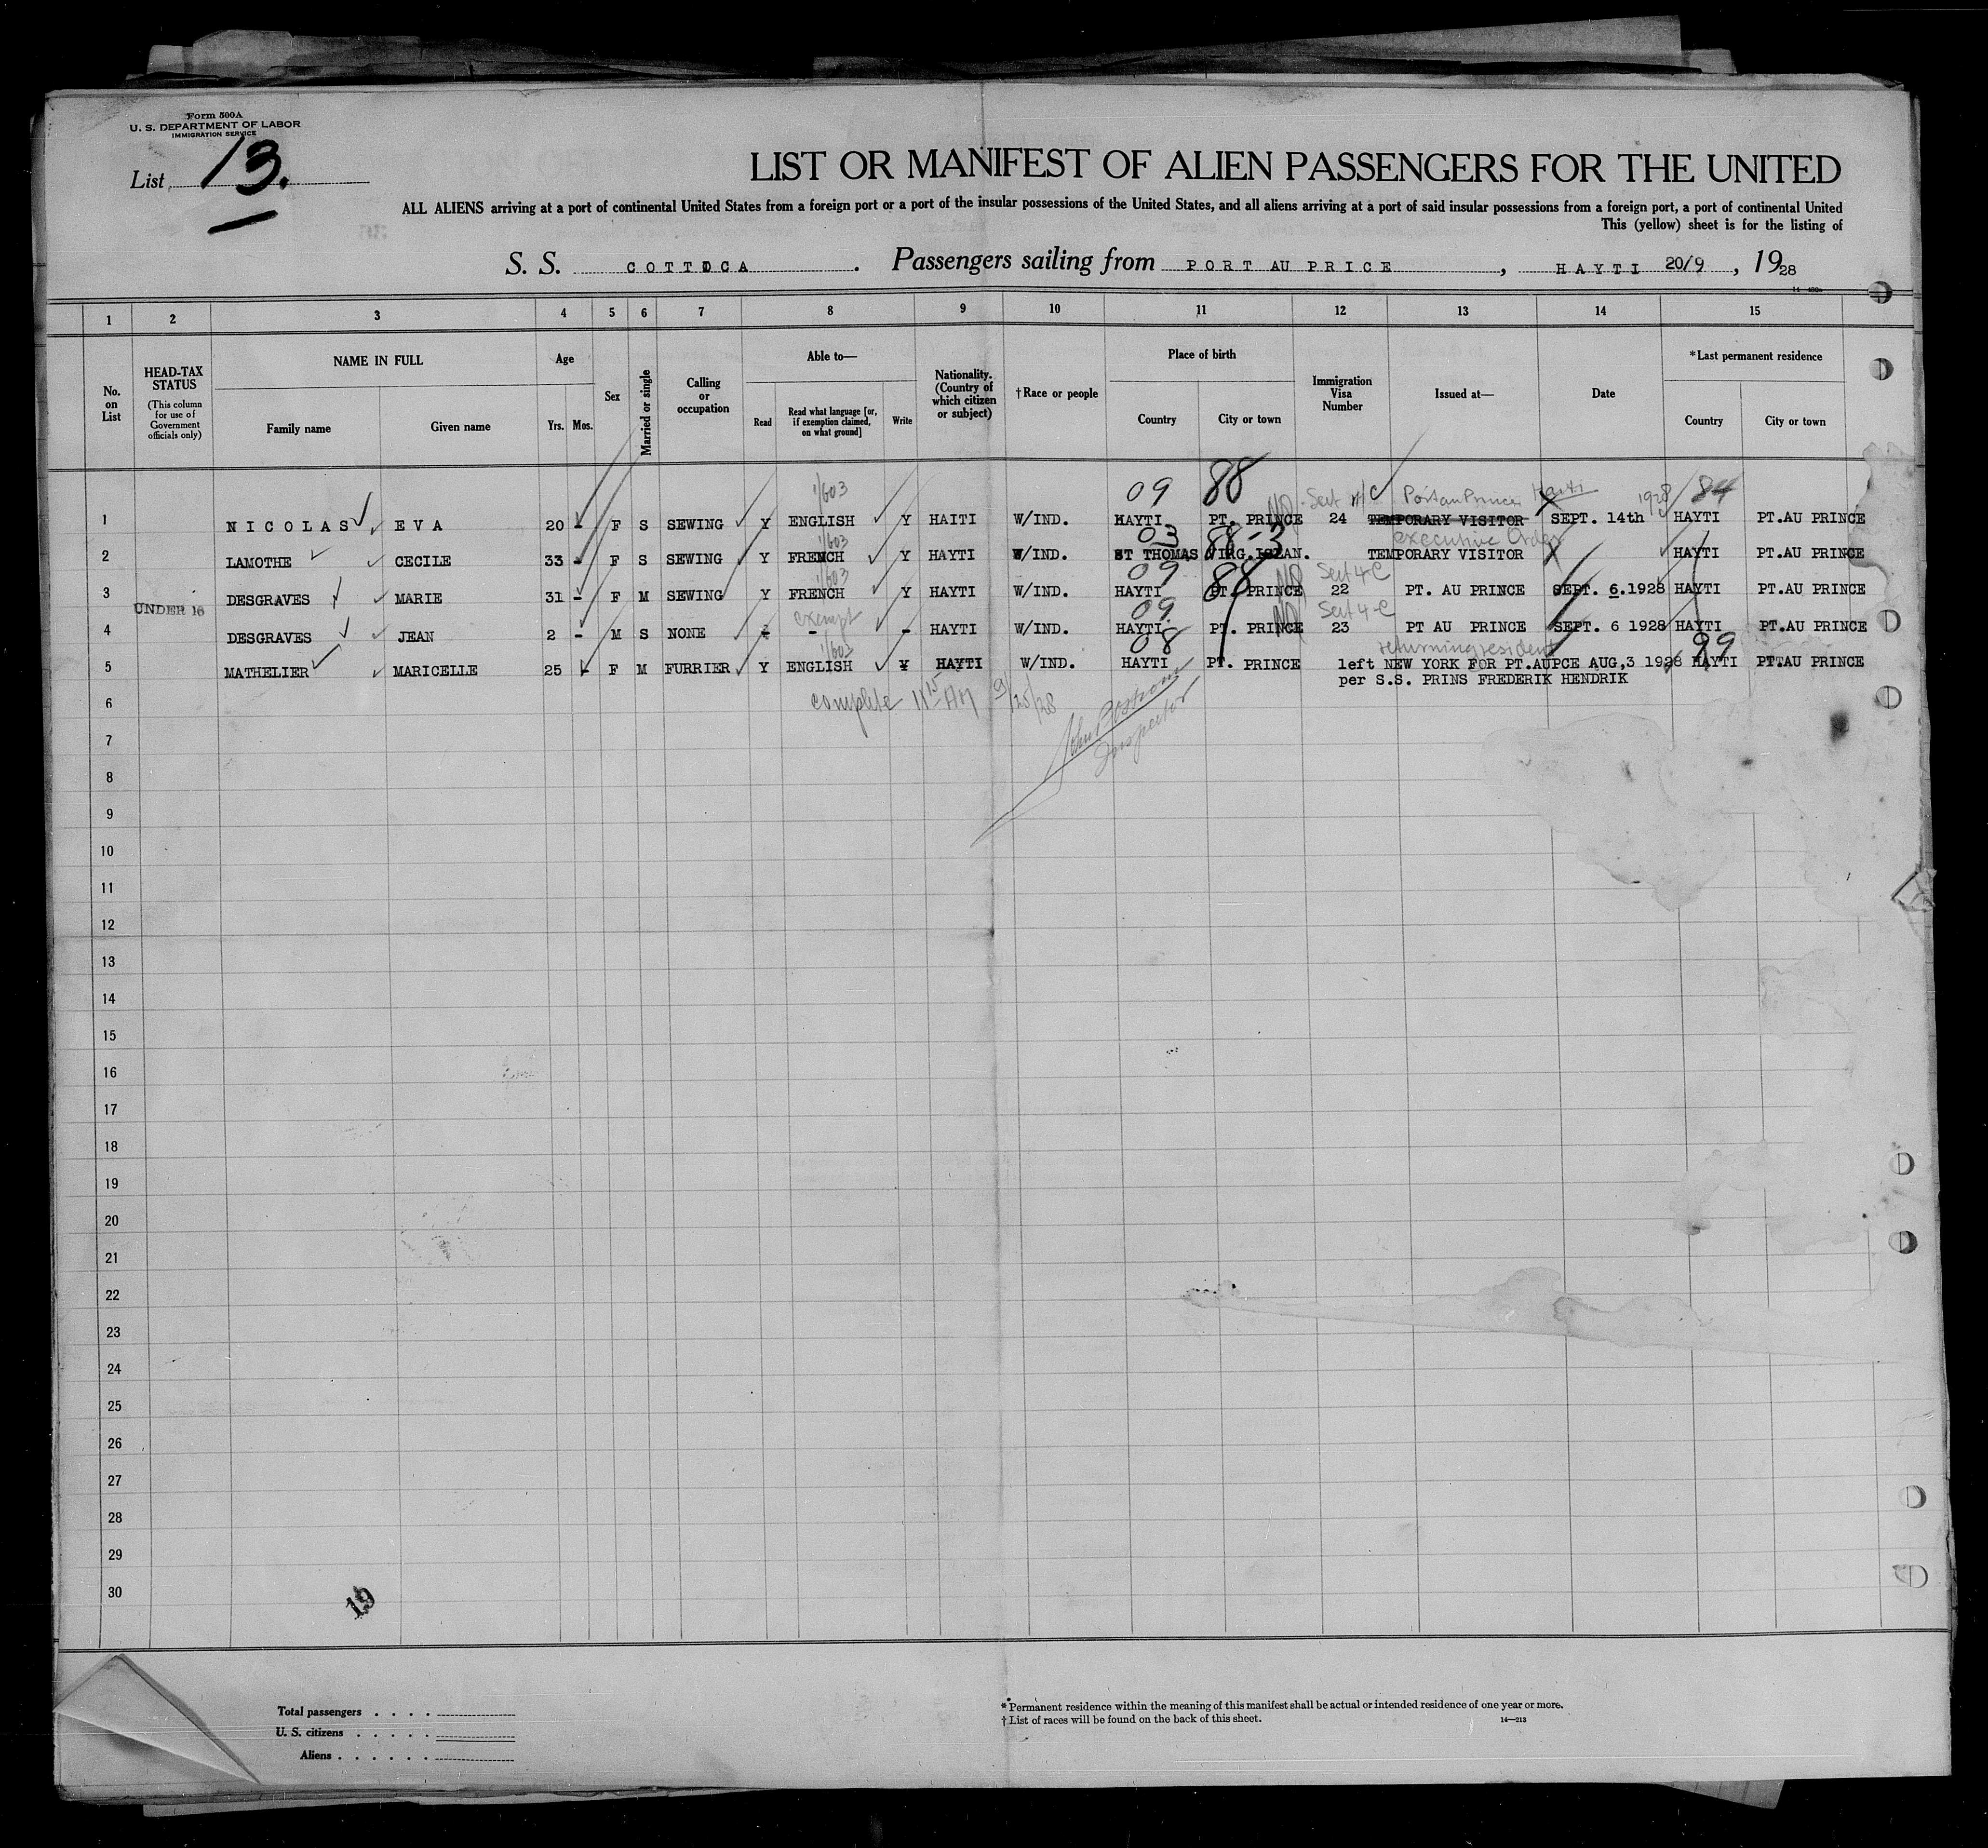 Form 500A
U. S. DEPARTMENT OF LABOR
IMMIGRATION SERVICE
List 13.
LIST OR MANIFEST OF ALIEN PASSENGERS FOR THE UNITED
ALL ALIENS arriving at a port of continental United States from a foreign port or a port of the insular possessions of the United States, and all aliens arriving at a port of said insular possessions from a foreign port, a port of continental United
This (yellow) sheet is for the listing of
S. S. COTTICA . Passengers sailing from PORT AU PRICE , HAYTI 20/9 , 1928
1 2 3 4 5 6 7 8 9 10 11 12 13 14 15
No. on List
HEAD-TAX STATUS
(This column for use of Government officials only)
NAME IN FULL
Family name Given name
Age
Yrs. Mos.
Sex
Married or single
Calling or occupation
Able to—
Read Read what language [or, if exemption claimed, on what ground] Write
Nationality. (Country of which citizen or subject)
†Race or people
Place of birth
Country City or town
Immigration Visa Number
Issued at—
Date
*Last permanent residence
Country City or town
1/603 09 88 Sect 4/C Port au Prince Haiti 1928 84
1 NICOLAS EVA 20 - F S SEWING Y ENGLISH Y HAITI W/IND. HAYTI PT. PRINCE 24 TEMPORARY VISITOR SEPT. 14th HAYTI PT.AU PRINCE
1/603 03 88-3 executive Order
2 LAMOTHE CECILE 33 - F S SEWING Y FRENCH Y HAYTI W/IND. ST THOMAS VIRG.ISLAN. TEMPORARY VISITOR HAYTI PT.AU PRINCE
1/603 09 88 Sect 4-C
3 DESGRAVES MARIE 31 - F M SEWING Y FRENCH Y HAYTI W/IND. HAYTI PT. PRINCE 22 PT. AU PRINCE SEPT. 6.1928 HAYTI PT.AU PRINCE
UNDER 16 exempt 09 Sect 4-C
4 DESGRAVES JEAN 2 - M S NONE - - - HAYTI W/IND. HAYTI PT. PRINCE 23 PT AU PRINCE SEPT. 6 1928 HAYTI PT.AU PRINCE
1/603 08 returning resident 99
5 MATHELIER MARICELLE 25 F M FURRIER Y ENGLISH Y HAYTI W/IND. HAYTI PT. PRINCE left NEW YORK FOR PT.AUPCE AUG,3 1928 HAYTI PT.AU PRINCE
per S.S. PRINS FREDERIK HENDRIK
6 complete 11 15 AM 9/25/28
Inspector
7
8
9
10
11
12
13
14
15
16
17
18
19
20
21
22
23
24
25
26
27
28
29
30
19
Total passengers . . . .
U. S. citizens . . . . .
Aliens . . . . . .
*Permanent residence within the meaning of this manifest shall be actual or intended residence of one year or more.
†List of races will be found on the back of this sheet.
14—213